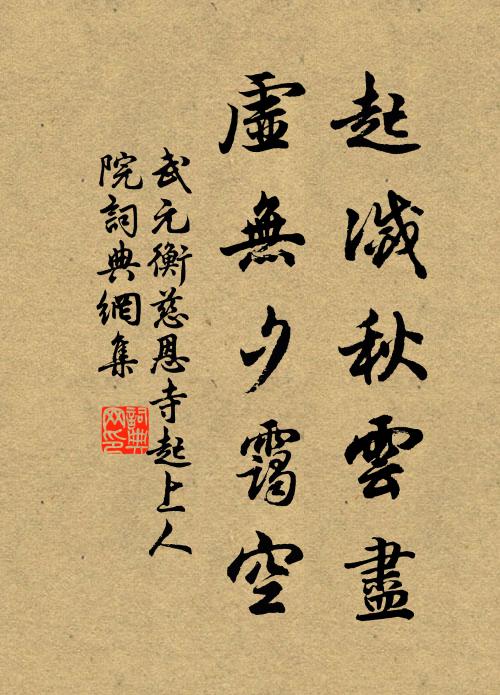 起滅秋雲盡
虛無夕靄空
武元衡慈恩寺起上人
院詞典網集
詞典網印